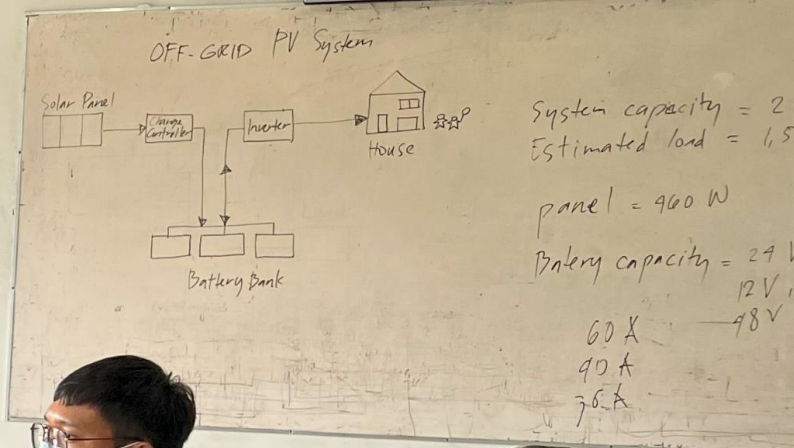 OFF-GRID PV System
Solar Panel
Charge
Controller
Inverter
House
Battery Bank
System capacity = 2
Estimated load = 1,5
panel = 460 W
Batery capacity = 24 V
12 V,
48 V
60 A